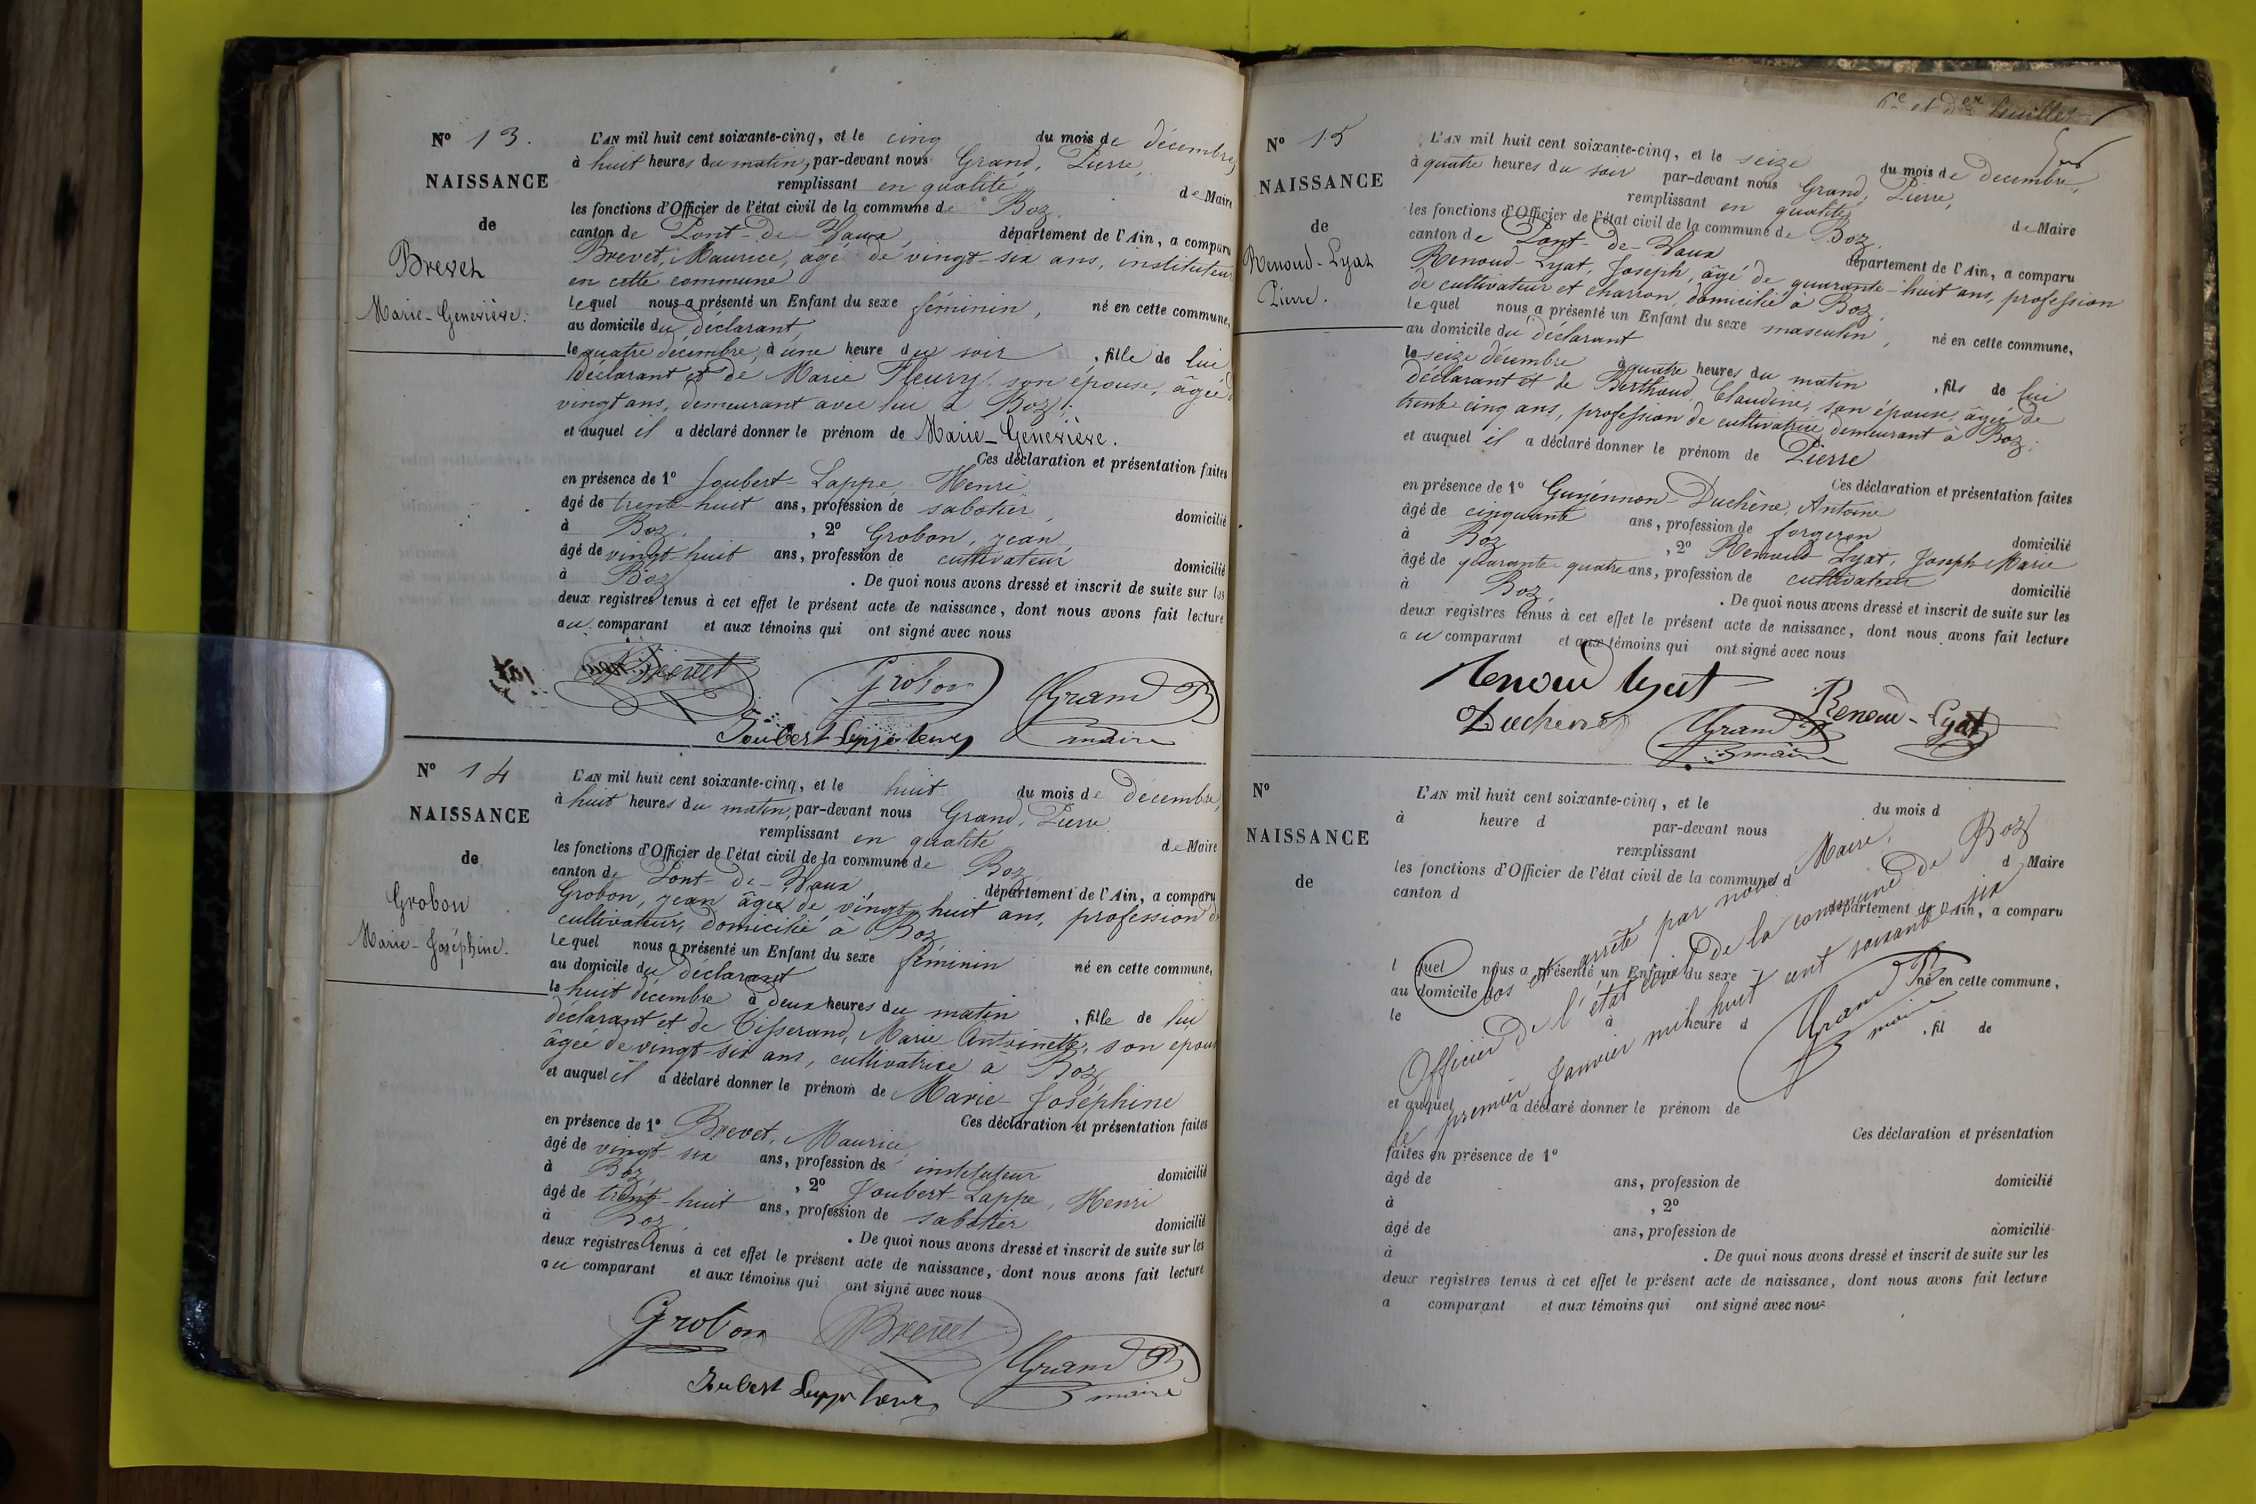 N° 13.
NAISSANCE
de
Brevet
Marie-Geneviève.
L'AN mil huit cent soixante-cinq, et le cinq du mois de décembre,
à huit heures du matin, par-devant nous Grand, Pierre,
remplissant en qualité de Maire
les fonctions d'Officier de l'état civil de la commune de Boz,
canton de Pont-de-Vaux, département de l'Ain, a comparu
Brevet, Maurice, âgé de vingt-six ans, instituteur
en cette commune
lequel nous a présenté un Enfant du sexe féminin, né en cette commune,
au domicile du déclarant
le quatre décembre, à une heure du soir, fille de lui
déclarant et de Marie Fleury son épouse, âgée de
vingt ans, demeurant avec lui à Boz;
et auquel il a déclaré donner le prénom de Marie-Geneviève.
Ces déclaration et présentation faites
en présence de 1° Joubert-Lappe, Henri
âgé de trente-huit ans, profession de sabotier, domicilié
à Boz, , 2° Grobon, Jean
âgé de vingt huit ans, profession de cultivateur domicilié
à Boz . De quoi nous avons dressé et inscrit de suite sur les
deux registres tenus à cet effet le présent acte de naissance, dont nous avons fait lecture
au comparant et aux témoins qui ont signé avec nous
Brevet Grobon Grand P
Joubert Lappe henri maire
N° 14
NAISSANCE
de
Grobon
Marie-Joséphine.
L'AN mil huit cent soixante-cinq, et le huit du mois de décembre,
à huit heures du matin, par-devant nous Grand, Pierre
remplissant en qualité de Maire
les fonctions d'Officier de l'état civil de la commune de Boz
canton de Pont-de-Vaux, département de l'Ain, a comparu
Grobon, Jean âgé de vingt huit ans, profession de
cultivateur, domicilié à Boz,
lequel nous a présenté un Enfant du sexe féminin né en cette commune,
au domicile du déclarant
le huit décembre à deux heures du matin, fille de lui
déclarant et de Tisserand, Marie Antoinette, son épouse
âgée de vingt-six ans, cultivatrice à Boz
et auquel il a déclaré donner le prénom de Marie Joséphine
Ces déclaration et présentation faites
en présence de 1° Brevet, Maurice
âgé de vingt six ans, profession de instituteur domicilié
à Boz, , 2° Joubert-Lappe, Henri
âgé de trente-huit ans, profession de sabotier domicilié
à Boz, . De quoi nous avons dressé et inscrit de suite sur les
deux registres tenus à cet effet le présent acte de naissance, dont nous avons fait lecture
au comparant et aux témoins qui ont signé avec nous
Grobon Brevet Grand P
Joubert Lappe henri maire
6e et der feuillet
N° 15
NAISSANCE
de
Renoud-Lyat
Pierre.
L'AN mil huit cent soixante-cinq, et le seize du mois de decembre,
à quatre heures du soir par-devant nous Grand, Pierre,
remplissant en qualité de Maire
les fonctions d'Officier de l'état civil de la commune de Boz,
canton de Pont-de-Vaux département de l'Ain, a comparu
Renoud-Lyat, Joseph, âgé de quarante-huit ans, profession
de cultivateur et charron, domicilié à Boz,
lequel nous a présenté un Enfant du sexe masculin, né en cette commune,
au domicile du déclarant
le seize décembre à quatre heures du matin, fils de lui
déclarant et de Berthoud, Claudine, son épouse, âgée de
trente cinq ans, profession de cultivatrice, demeurant à Boz;
et auquel il a déclaré donner le prénom de Pierre
Ces déclaration et présentation faites
en présence de 1° Guyennon-Duchêne, Antoine
âgé de cinquante ans, profession de forgeron domicilié
à Boz , 2° Renoud-Lyat, Joseph Marie
âgé de quarante-quatre ans, profession de cultivateur domicilié
à Boz, . De quoi nous avons dressé et inscrit de suite sur les
deux registres tenus à cet effet le présent acte de naissance, dont nous avons fait lecture
au comparant et aux témoins qui ont signé avec nous
Renoud lyat Renoud-Lyat
Duchene Grand P
maire
N°
NAISSANCE
de
L'AN mil huit cent soixante-cinq, et le du mois d
à heure d par-devant nous
remplissant d Maire
les fonctions d'Officier de l'état civil de la commune d
canton d département de l'Ain, a comparu
l quel nous a présenté un Enfant du sexe né en cette commune,
au domicile d
le à heure d , fil de
et auquel a déclaré donner le prénom de
Ces déclaration et présentation
faites en présence de 1°
âgé de ans, profession de domicilié
à , 2°
âgé de ans, profession de domicilié
à . De quoi nous avons dressé et inscrit de suite sur les
deux registres tenus à cet effet le présent acte de naissance, dont nous avons fait lecture
a comparant et aux témoins qui ont signé avec nous
Clos et arrêté par nous Maire,
Officier de l'état civil de la commune de Boz
le premier Janvier mil huit cent soixante six
Grand P
maire